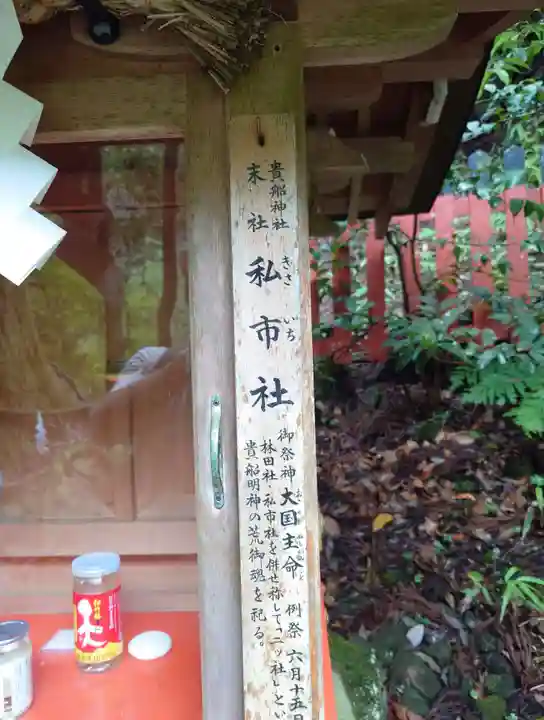 貴船神社
末社
私市社
きさいち
御祭神 大国主命 例祭 六月十五日
林田社・私市社を併せ称して二ツ社とい
貴船明神の荒御魂を祀る。